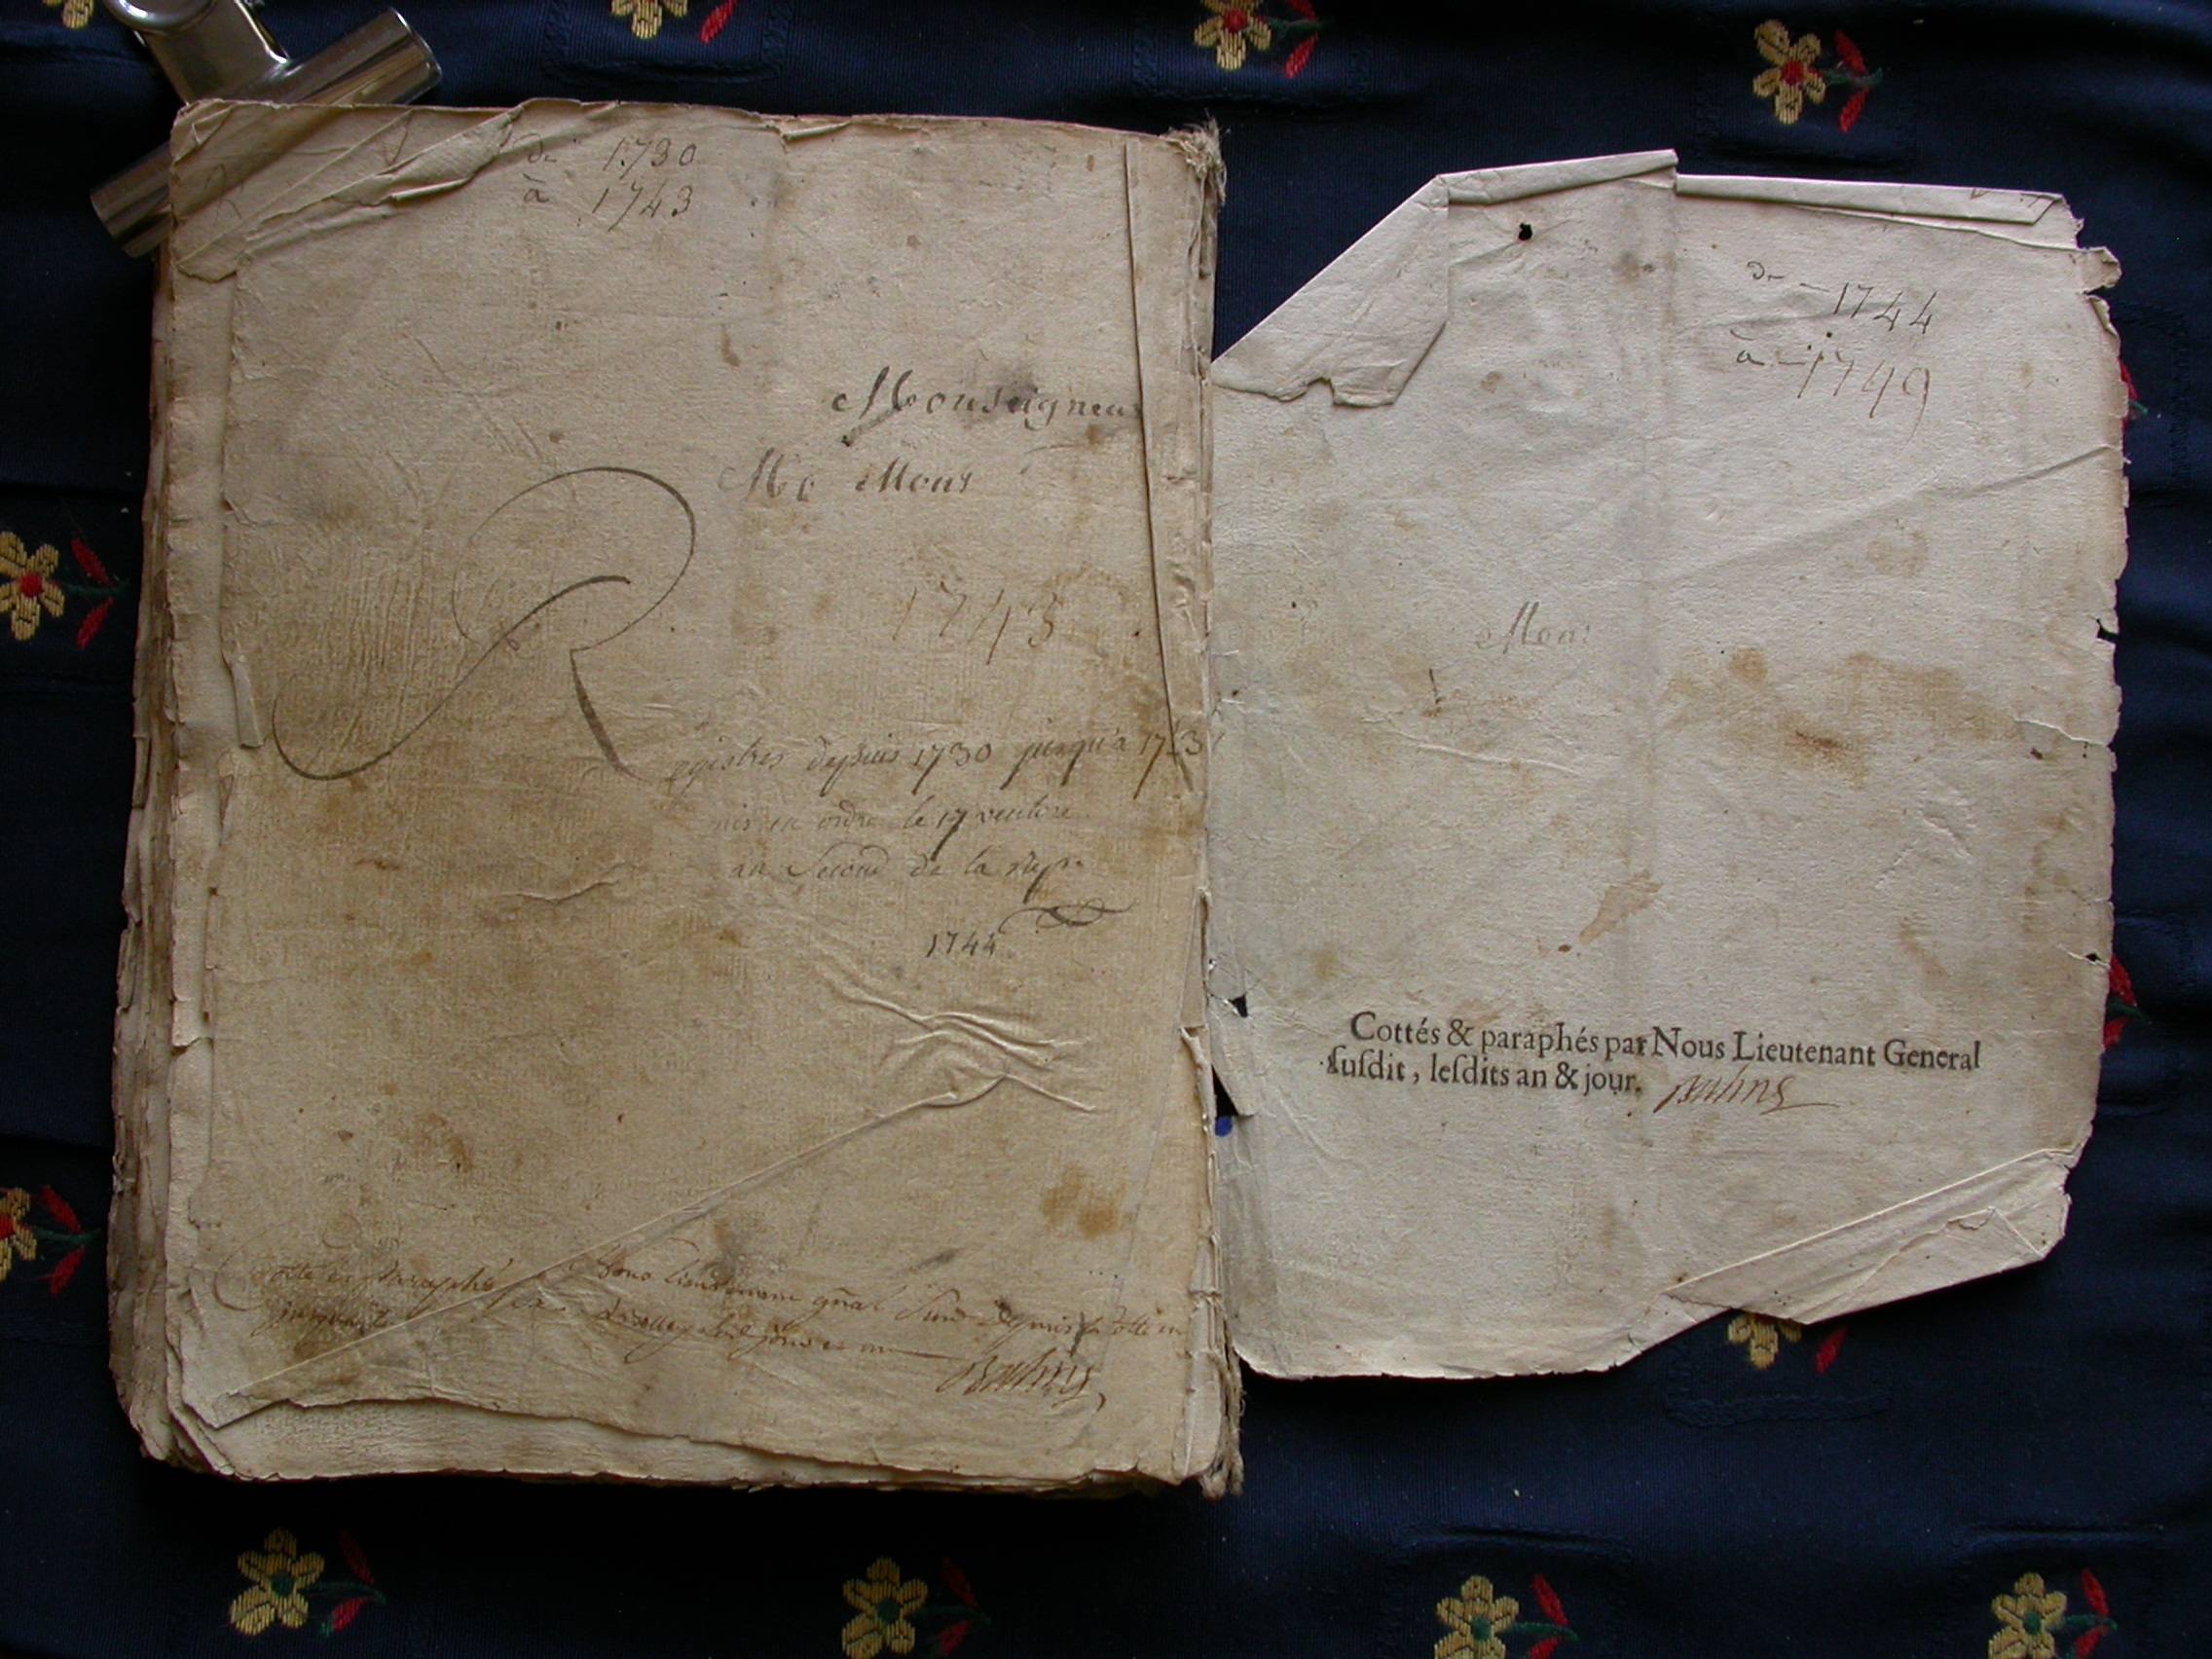 de 1730
à 1743
Monseigneu
Mo Mons
1743
Registres depuis 1730 jusqu'à 1743
mis en ordre le 17 ventose
an Second de la Rep.
1744
Cotté et paraphé Nous Lieutenant gñal
jour et an
de 1744
à 1749
Mons
Cottés & paraphés par Nous Lieutenant General
ſuſdit, leſdits an & jour.